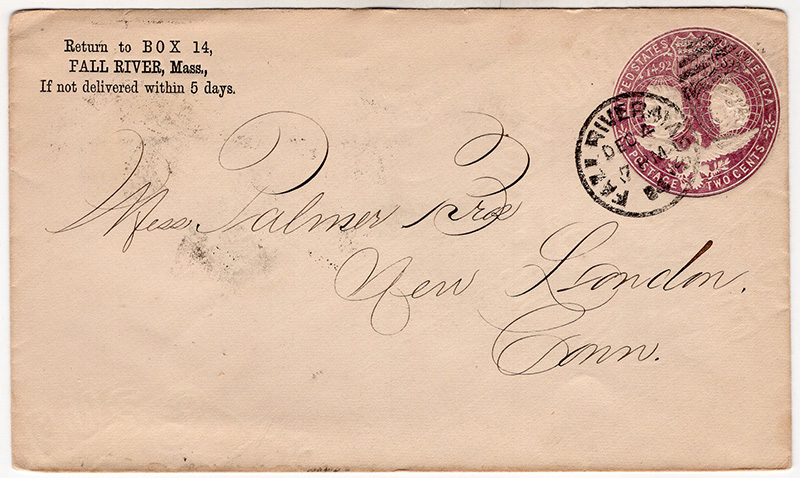 Return to BOX 14,
FALL RIVER, Mass.,
If not delivered within 5 days.
UNITED STATES AMERICA
1492
POSTAGE TWO CENTS
FALL RIVER MASS
DEC
Mess Palmer Bros
New London.
Conn.